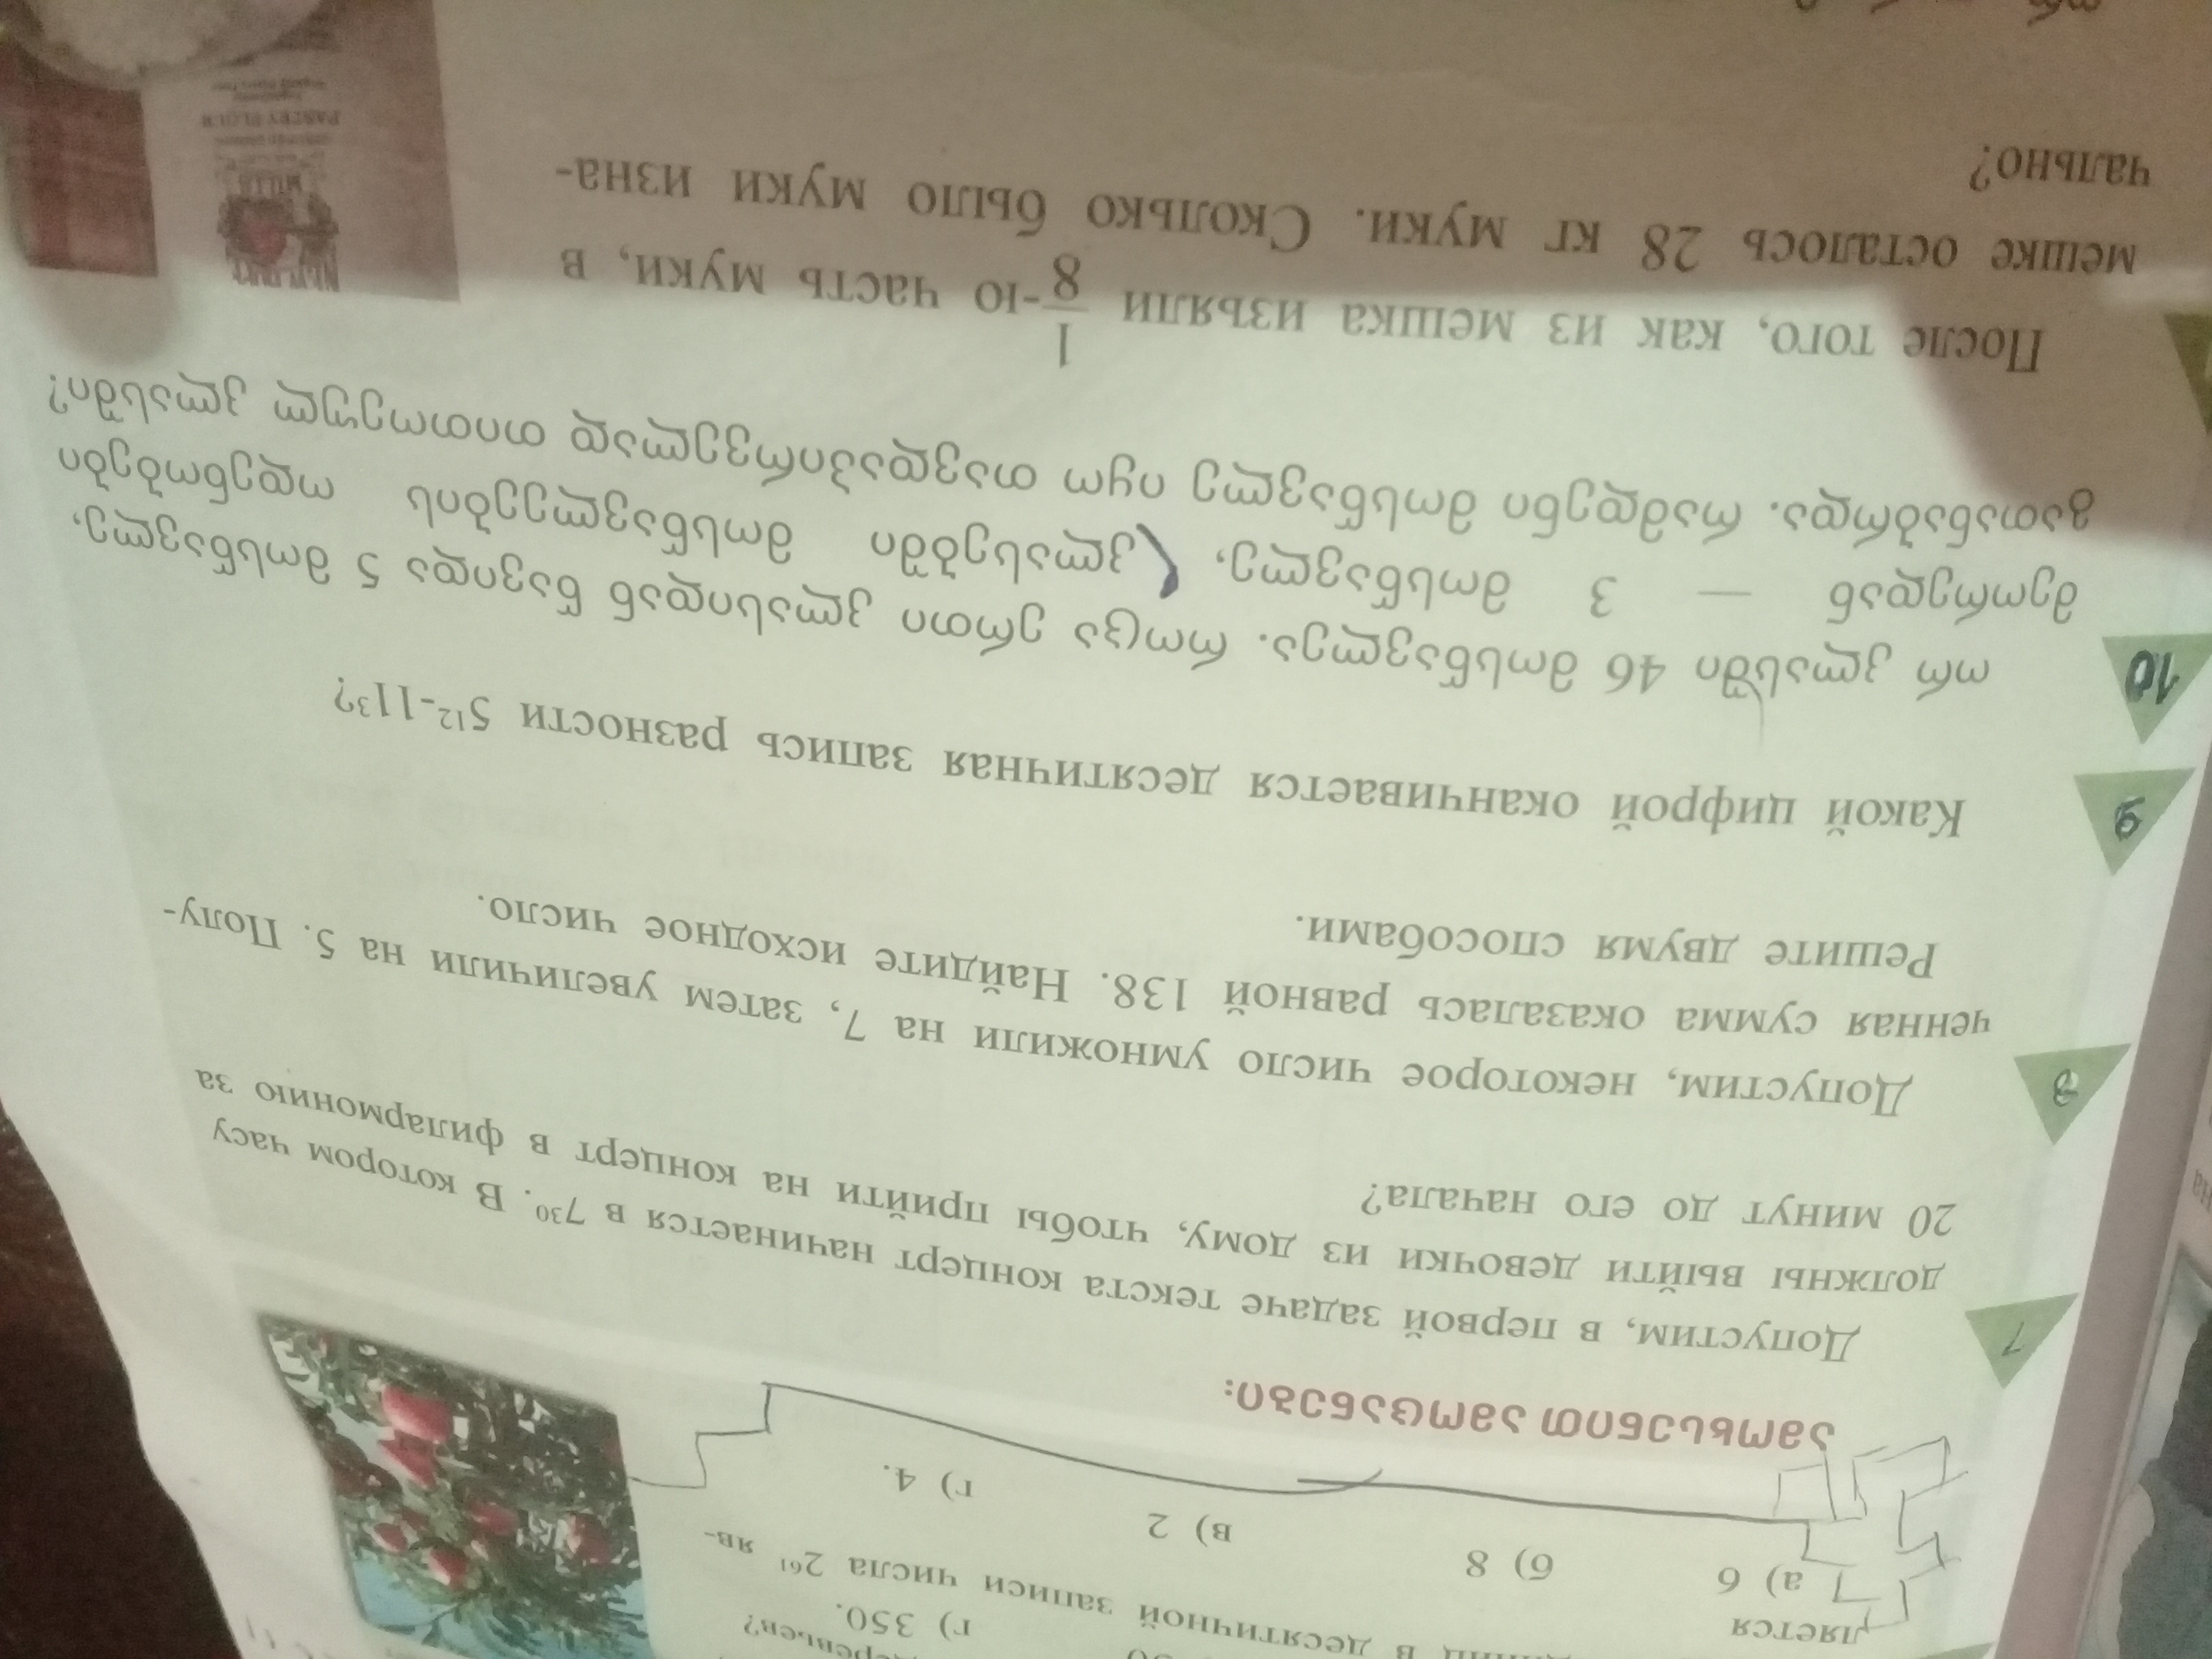 г) 350.
в десятичной записи числа 2⁶¹ яв-
ляется
а) 6 б) 8 в) 2 г) 4.
ამოხსენით ამოცანები:
7
Допустим, в первой задаче текста концерт начинается в 7³⁰. В котором часу
должны выйти девочки из дому, чтобы прийти на концерт в филармонию за
20 минут до его начала?
8
Допустим, некоторое число умножили на 7, затем увеличили на 5. Полу-
ченная сумма оказалась равной 138. Найдите исходное число.
Решите двумя способами.
9
Какой цифрой оканчивается десятичная запись разности 5¹²-11³?
10
ორ კლასში 46 მოსწავლეა. როცა ერთი კლასიდან წავიდა 5 მოსწავლე,
მეორედან — 3 მოსწავლე, კლასებში მოსწავლეების ოდენობები
გათანაბრდა. რამდენი მოსწავლე იყო თავდაპირველად თითოეულ კლასში?
После того, как из мешка изъяли 1/8-ю часть муки, в
мешке осталось 28 кг муки. Сколько было муки изна-
чально?
MILLS
PASTRY FLOUR